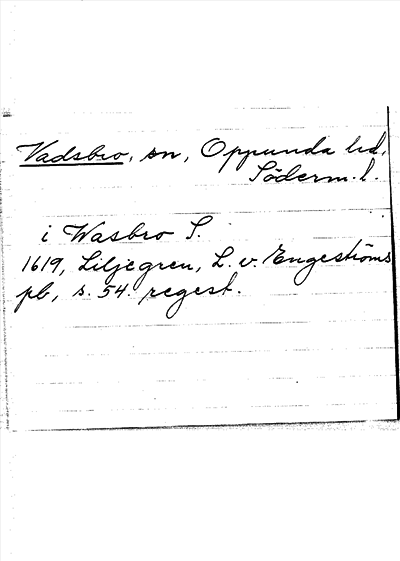 Vadsbro, sn, Oppunda hd,
Söderm. l.
i Wasbro S.
1619, Liljegren, L. v. Engeströms
pb, s. 54. regest.